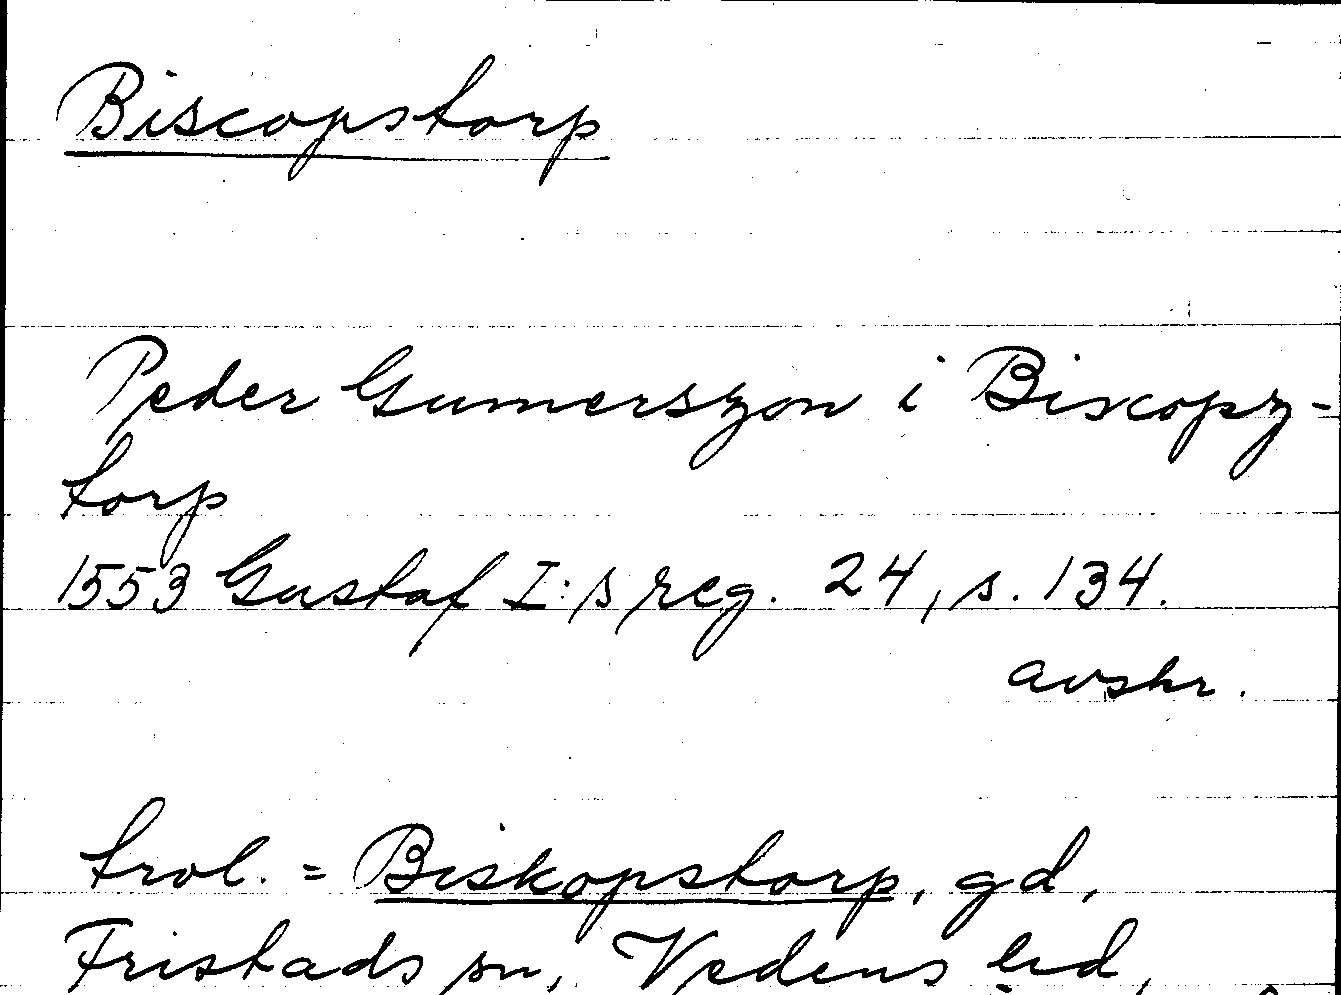 Biscopstorp
Peder Gumerszon i Biscopz-
torp
1553 Gustaf I:s reg. 24, s. 134.
avskr.
trol. = Biskopstorp, gd,
Fristads sn, Vedens hd,